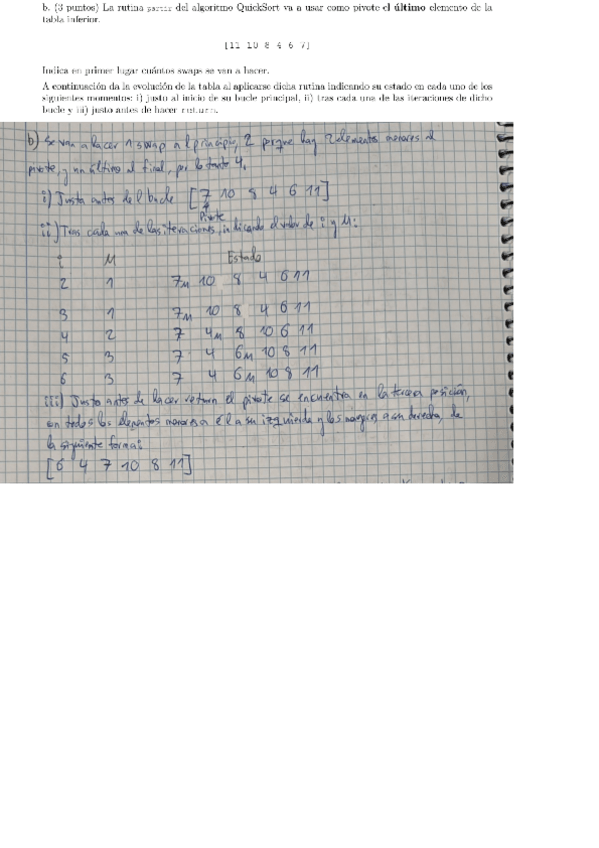 b. (3 puntos) La rutina partir del algoritmo QuickSort va a usar como pivote el último elemento de la
tabla inferior.
[11 10 8 4 6 7]
Indica en primer lugar cuántos swaps se van a hacer.
A continuación da la evolución de la tabla al aplicarse dicha rutina indicando su estado en cada uno de los
siguientes momentos: i) justo al inicio de su bucle principal, ii) tras cada una de las iteraciones de dicho
bucle y iii) justo antes de hacer return.
b) Se van a hacer 1 swap al principio, 2 porque hay 2 elementos menores al
pivote, y un último al final, por lo tanto 4.
i) Justo antes del bucle [7 10 8 4 6 11]
Pivote
ii) Tras cada una de las iteraciones, indicando el valor de i y M:
i M Estado
2 1 7M 10 8 4 6 11
3 1 7M 10 8 4 6 11
4 2 7 4M 8 10 6 11
5 3 7 4 6M 10 8 11
6 3 7 4 6M 10 8 11
iii) Justo antes de hacer return el pivote se encuentra en la tercera posición,
con todos los elementos menores a él a su izquierda y los mayores a su derecha, de
la siguiente forma:
[6 4 7 10 8 11]